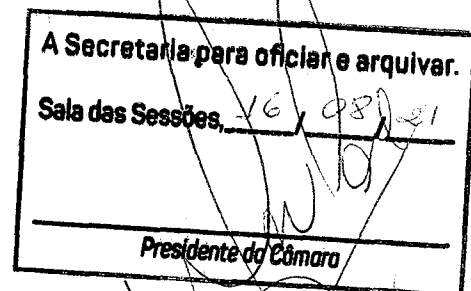 A Secretaria para oficiar e arquivar.
Sala das Sessões, 16 / 08 / 21
Presidente da Câmara